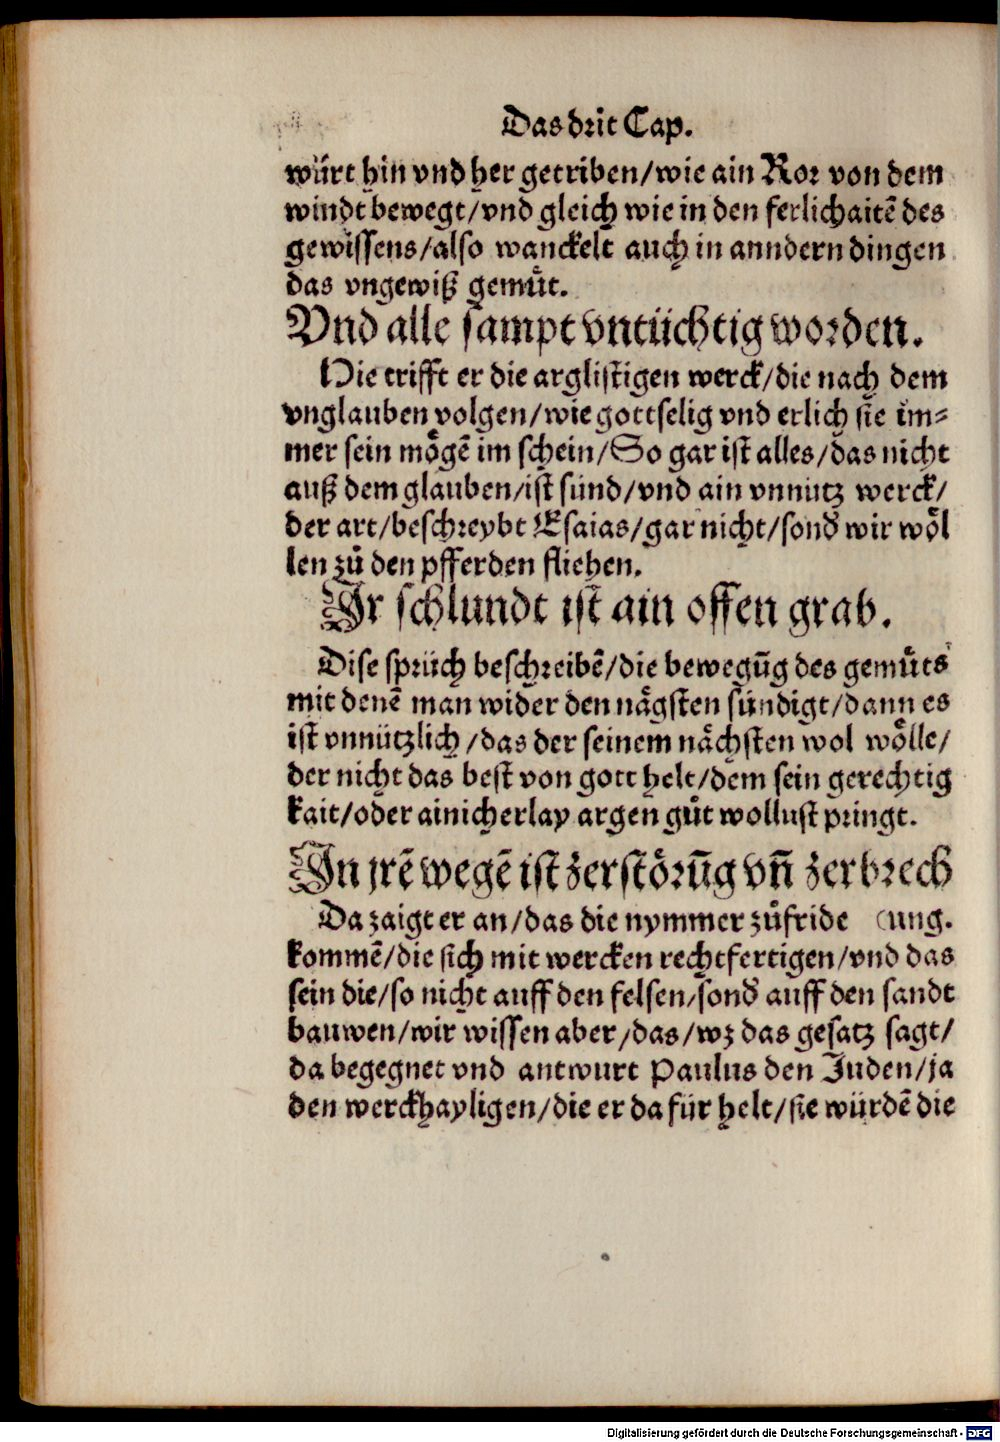 Das drit Cap.
würt hin vnd her getriben/wie ain Ror von dem
windt bewegt/vnd gleich wie in den ferlichaitē des
gewissens/also wanckelt auch in anndern dingen
das vngewiß gemuͤt.
Vnd alle sampt vntüchtig worden.
Hie trifft er die arglistigen werck/die nach dem
vnglauben volgen/wie gottselig vnd erlich sie im⸗
mer sein moͤgē im schein/So gar ist alles/das nicht
auß dem glauben/ist sünd/vnd ain vnnutz werck/
der art/beschreybt Esaias/gar nicht/sond wir woͤl
len zuͦ den pfferden fliehen.
Ir schlundt ist ain offen grab.
Dise sprüch beschreibē/die bewegūg des gemuͤts
mit denē man wider den naͤgsten sündigt/dann es
ist vnnützlich/das der seinem naͤchsten wol woͤlle/
der nicht das best von gott helt/dem sein gerechtig
kait/oder ainicherlay argen guͦt wollust pringt.
In jrē wegē ist zerstoͤrūg vn̄ zerbrech
Da zaigt er an/das die nymmer zuͦfride (ung.
kommē/die sich mit wercken rechtfertigen/vnd das
sein die/so nicht auff den felsen/sond auff den sandt
bauwen/wir wissen aber/das/wz das gesatz sagt/
da begegnet vnd antwurt Paulus den Juden/ja
den werckhayligen/die er da für helt/sie würdē die
Digitalisierung gefördert durch die Deutsche Forschungsgemeinschaft - DFG